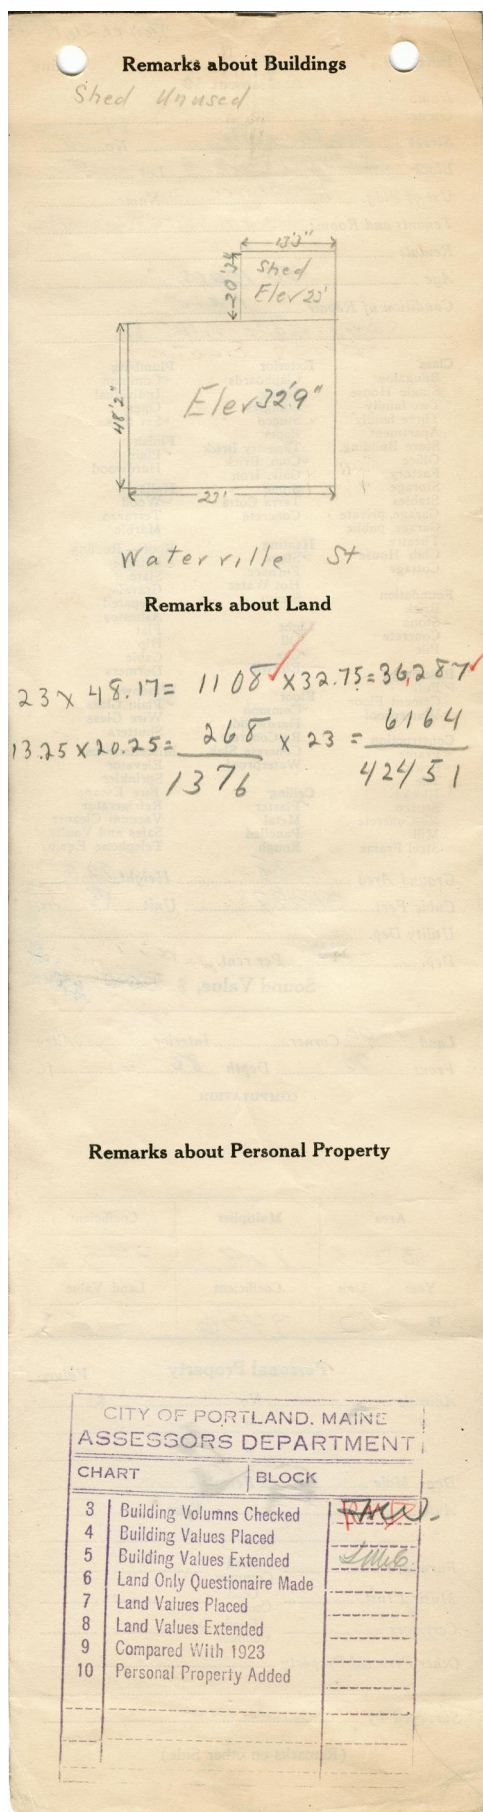 Remarks about Buildings
Shed Unused
13'3"
20'3"
Shed
Elev 23'
48'2"
Elev 32'9"
23'
Waterville St
Remarks about Land
23 x 48.17 = 1108 x 32.75 = 36,287
13.25 x 20.25 = 268 x 23 = 6164
1376 42451
Remarks about Personal Property
CITY OF PORTLAND. MAINE
ASSESSORS DEPARTMENT
CHART BLOCK
3 Building Volumns Checked
4 Building Values Placed
5 Building Values Extended
6 Land Only Questionaire Made
7 Land Values Placed
8 Land Values Extended
9 Compared With 1923
10 Personal Property Added